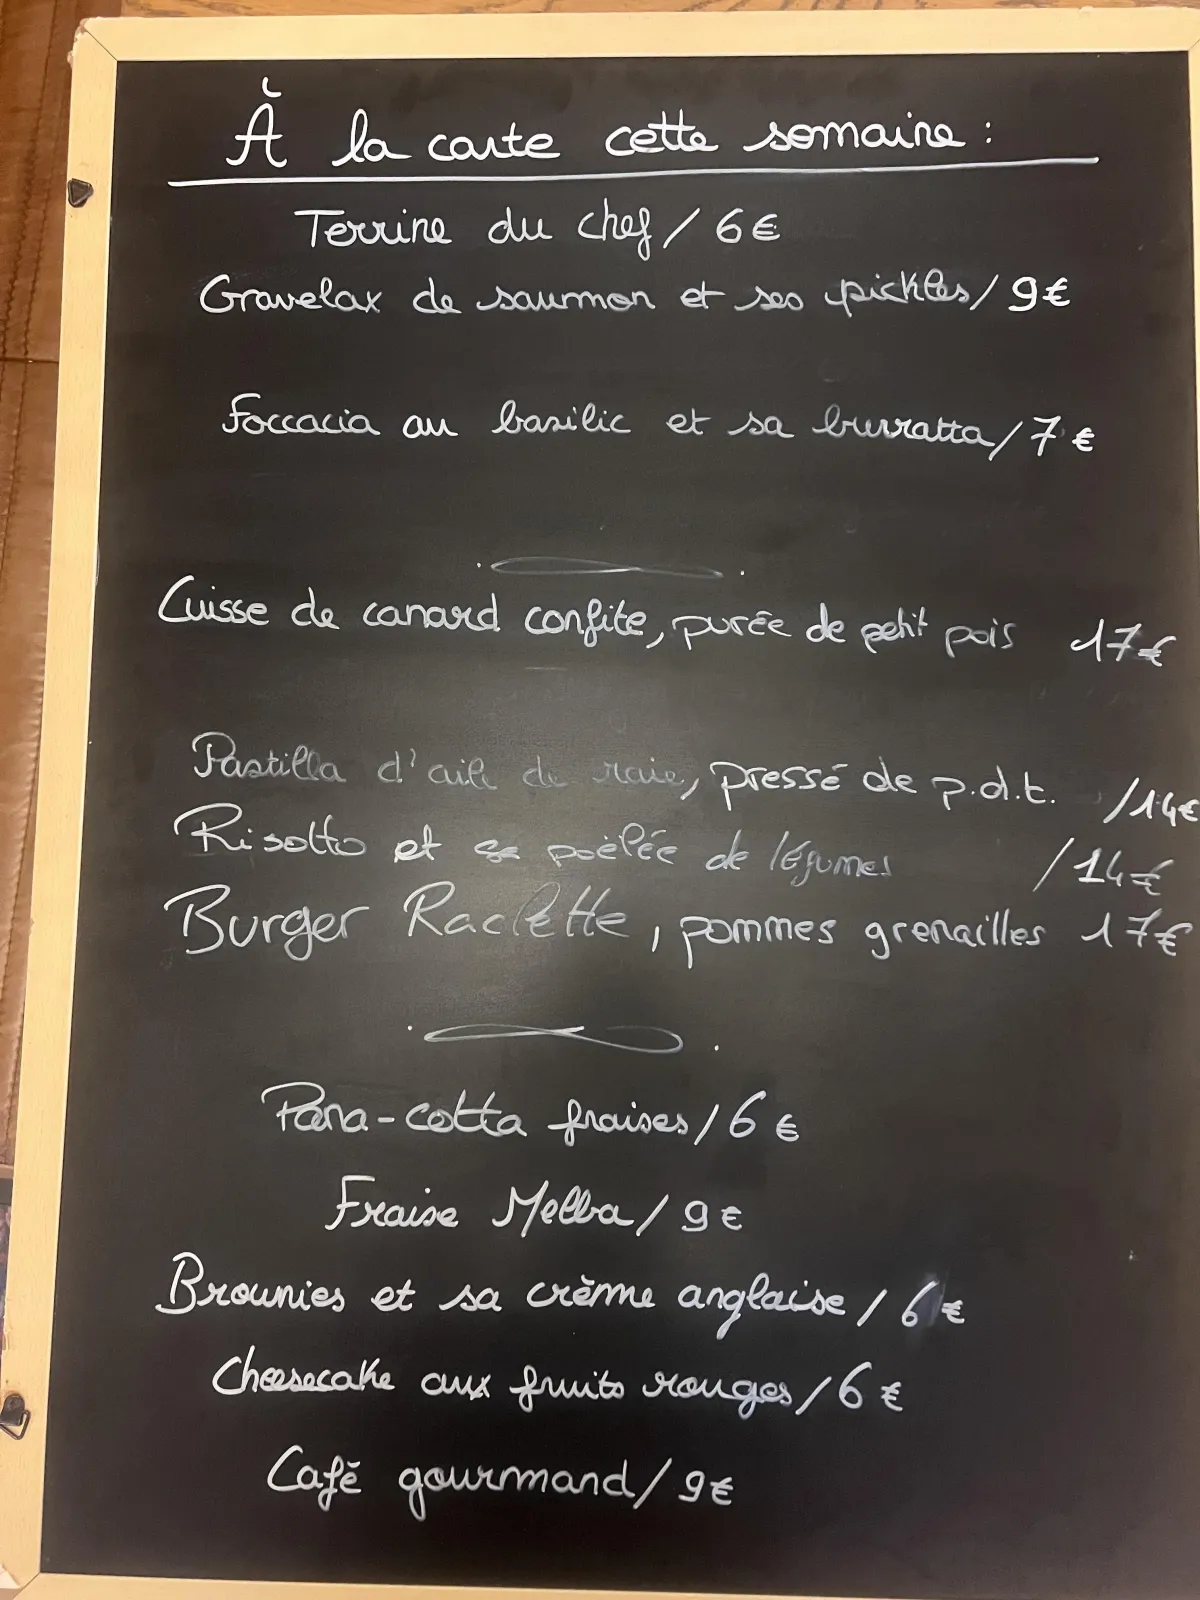 À la carte cette semaine :
Terrine du chef / 6 €
Gravelax de saumon et ses pickles / 9 €
Foccacia au basilic et sa burratta / 7 €
Cuisse de canard confite, purée de petit pois 17€
Pastilla d'aile de raie, pressé de p.d.t. /14€
Risotto et sa poêlée de légumes /14€
Burger Raclette, pommes grenailles 17€
Pana-cotta fraises / 6 €
Fraise Melba / 9 €
Brownies et sa crème anglaise / 6 €
Cheesecake aux fruits rouges / 6 €
Café gourmand / 9€